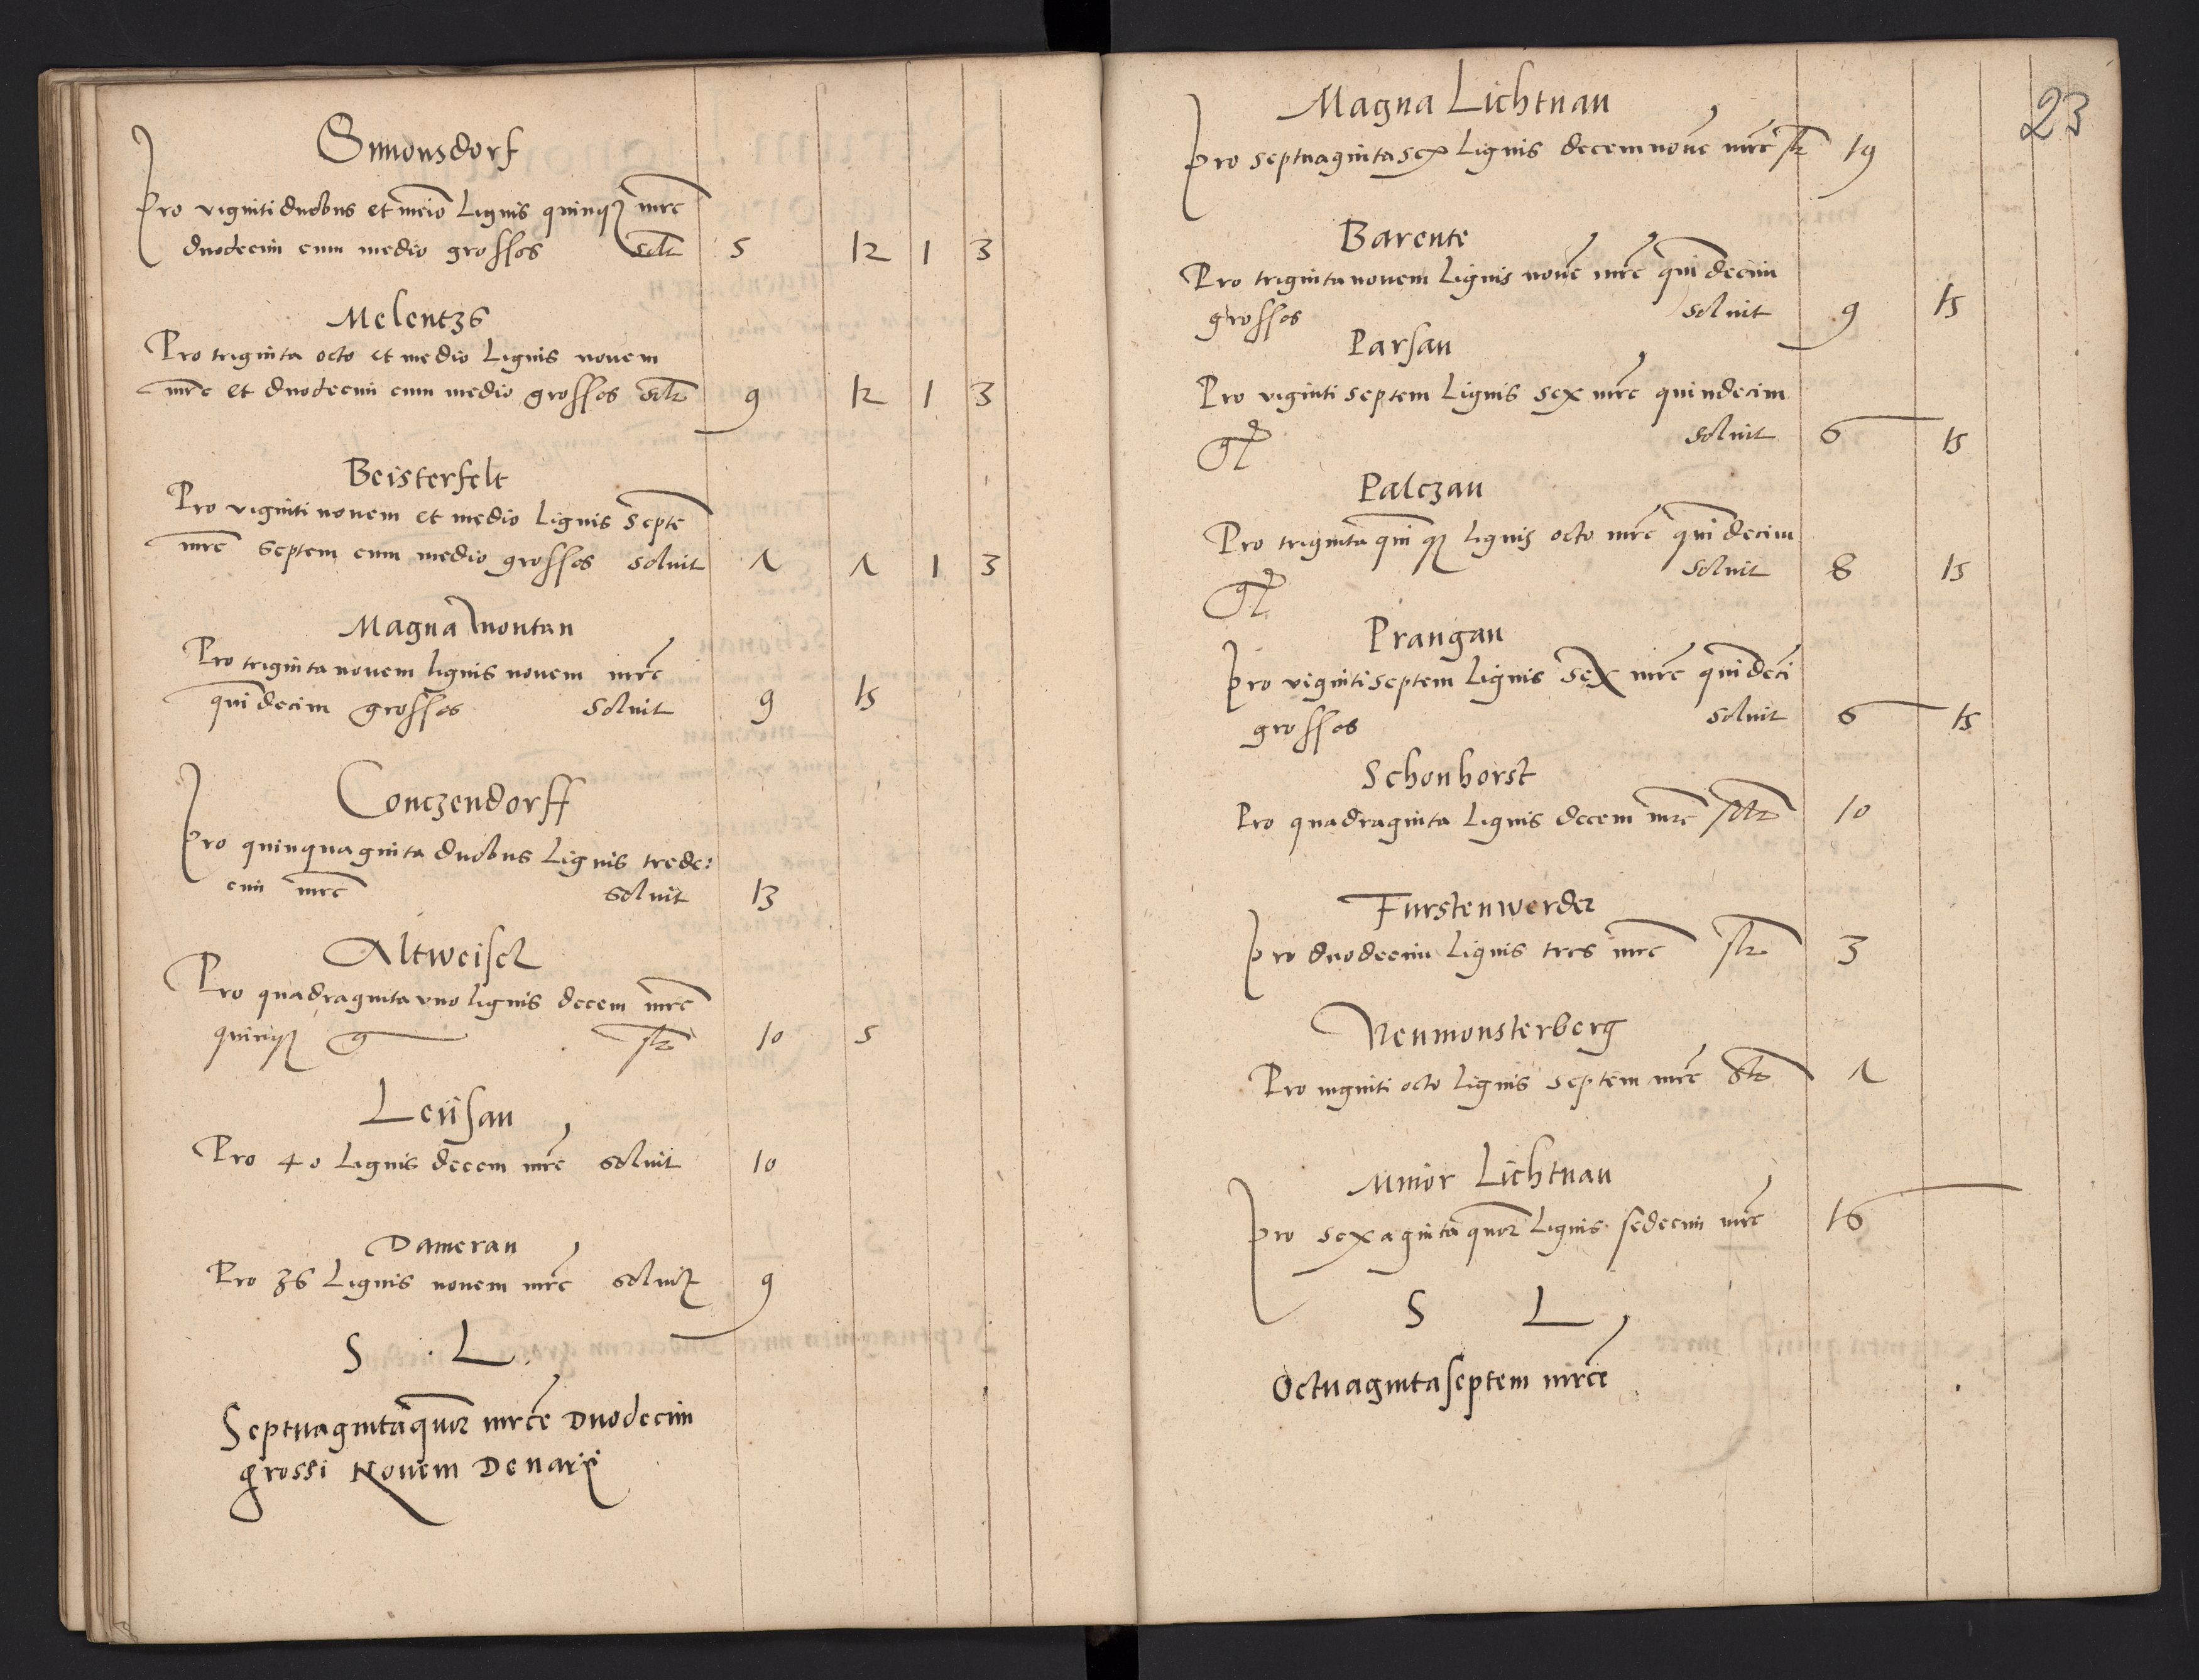 Simonsdorf
Pro viginti duobus et meio Lignis quinq mrc
duodecim cum medio grossos solt 5 12 1 3
Melentz6
Pro triginta octo et medio Lignis novem
mrc et duodecim cum medio grossos solt 9 12 1 3
Beisterfelt
Pro viginti novem et medio Lignis Septe
mrc septem cum medio grossos soluit 7 7 1 3
Magna montan
Pro triginta novem lignis novem mrc
quidecim grossos soluit 9 15
Conczendorff
Pro quinquaginta duobus Lignis trede:
cim mrc soluit 13
Altweisel
Pro quadraginta vno lignis decem mrc
quinq g slt 10 5
Leüsau
Pro 40 Lignis decem mrc soluit 10
Dameran
Pro 36 Lignis novem mrc soluit 9
S . L .
Septuagintaquor mrce Duodecim
grossi Novem Denarii
23
Magna Lichtnau
Pro septuagintasex Lignis decemnove mrc slt 19
Barente
Pro trigintanovem Lignis nove mrc quidecim
grossos soluit 9 15
Parsau
Pro viginti septem Lignis sex mrc quindecim
gl soluit 6 15
Palczau
Pro triginta quiq lignis octo mrc quidecim
gl soluit 8 15
Prangau
Pro vigintiseptem Lignis sex mrc quideci
grossos soluit 6 15
Schonhorst
Pro quadraginta Lignis decem mrc solt 10
Furstenwerder
Pro duodecim Lignis tres mrc slt 3
Neumonsterberg
Pro viginti octo lignis septem mrc slt 7
Minor Lichtnau
Pro sexaginta quor Lignis sedecim mrc 16
S L
Octuagintaseptem mrce